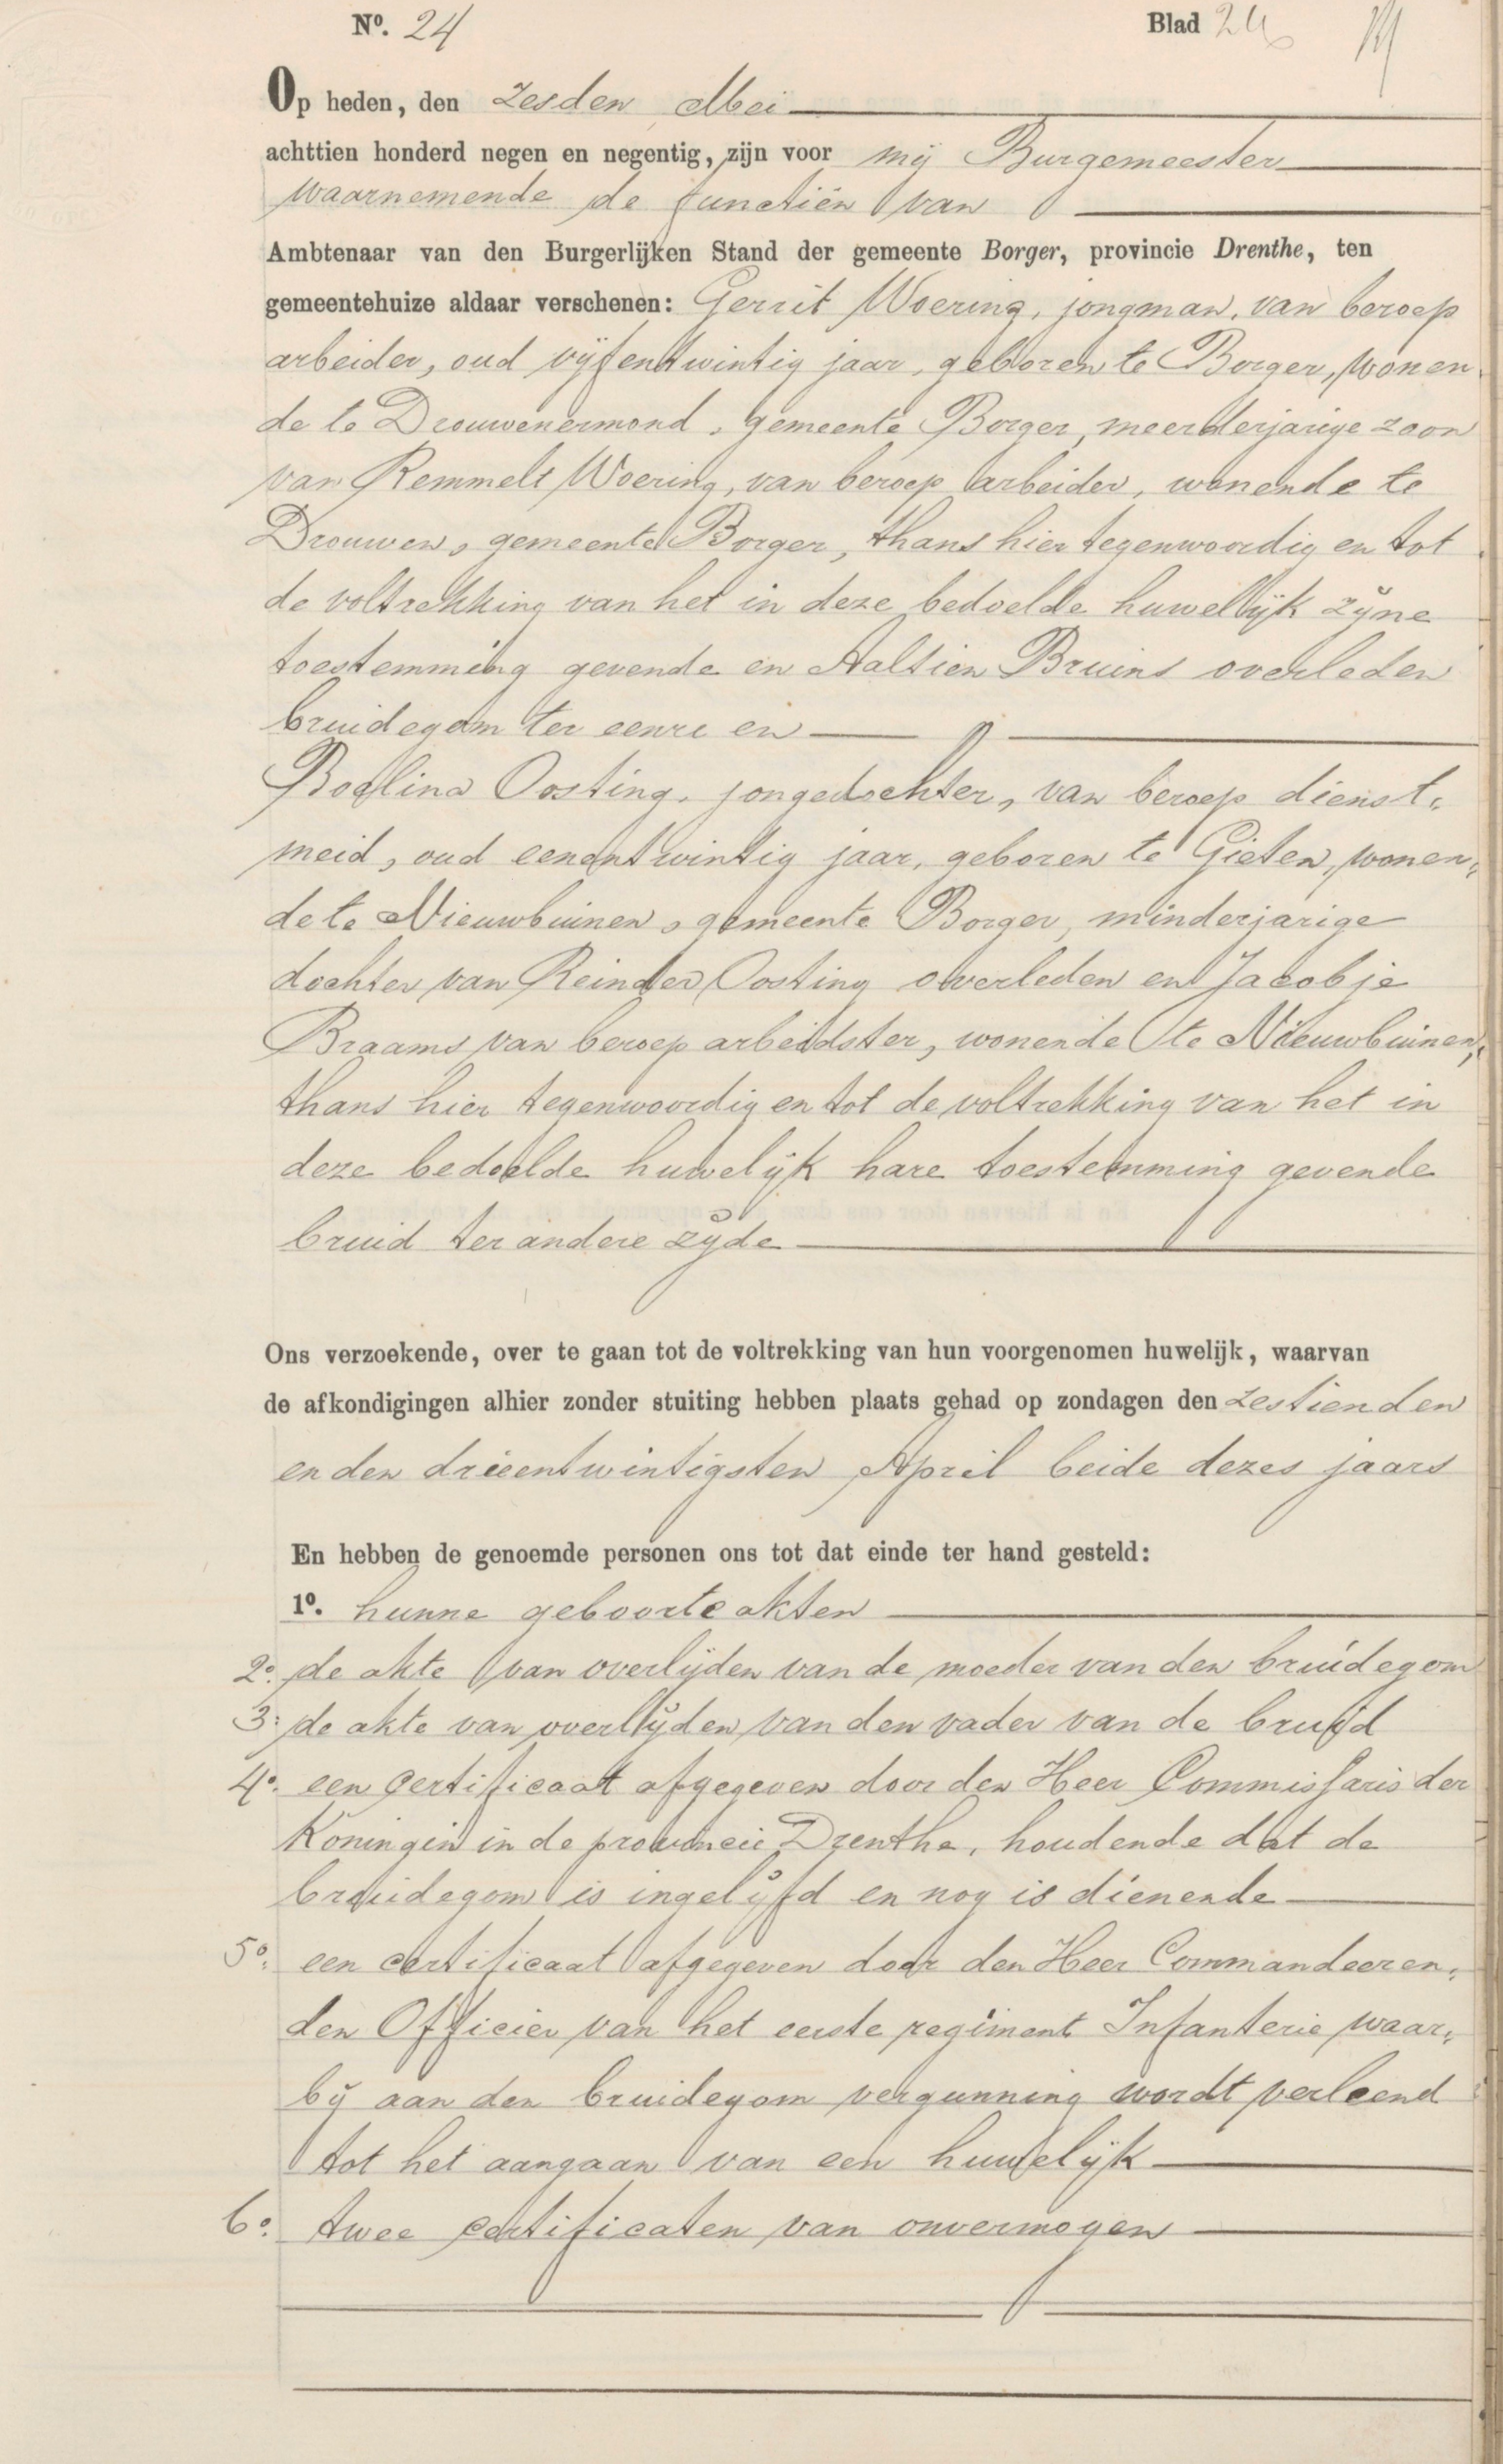 Nº. 24 Blad 24
Op heden, den zesden Mei
achttien honderd negen en negentig, zijn voor mij Burgemeester
waarnemende de functiën van
Ambtenaar van den Burgerlijken Stand der gemeente Borger, provincie Drenthe, ten
gemeentehuize aldaar verschenen: Gerrit Woering, jongman, van beroep
arbeider, oud vijfentwintig jaar, geboren te Borger, wonen
de te Drouwenermond, gemeente Borger, meerderjarige zoon
van Remmelt Woering, van beroep arbeider, wonende te
Drouwen, gemeente Borger, thans hier tegenwoordig en tot
de voltrekking van het in deze bedoelde huwelijk zijne
toestemming gevende en Aaltien Bruins overleden
bruidegom ter eenre en
Roelina Oosting, jongedochter, van beroep dienst-
meid, oud eenentwintig jaar, geboren te Gieten, wonen-
de te Nieuwbuinen, gemeente Borger, minderjarige
dochter van Reinder Oosting overleden en Jacobje
Braams van beroep arbeidster, wonende te Nieuwbuinen,
thans hier tegenwoordig en tot de voltrekking van het in
deze bedoelde huwelijk hare toestemming gevende
bruid ter andere zijde
Ons verzoekende, over te gaan tot de voltrekking van hun voorgenomen huwelijk, waarvan
de afkondigingen alhier zonder stuiting hebben plaats gehad op zondagen den zestienden
en den drieentwintigsten April beide dezes jaars
En hebben de genoemde personen ons tot dat einde ter hand gesteld:
1º. hunne geboorteakten
2º. de akte van overlijden van de moeder van den bruidegom
3º. de akte van overlijden van den vader van de bruid
4º. een certificaat afgegeven door den Heer Commissaris der
Koningin in de provincie Drenthe, houdende dat de
bruidegom is ingelijfd en nog is dienende
5º. een certificaat afgegeven door den Heer Commandeeren-
den Officier van het eerste regiment Infanterie waar-
bij aan den bruidegom vergunning wordt verleend
tot het aangaan van een huwelijk
6º. twee certificaten van onvermogen